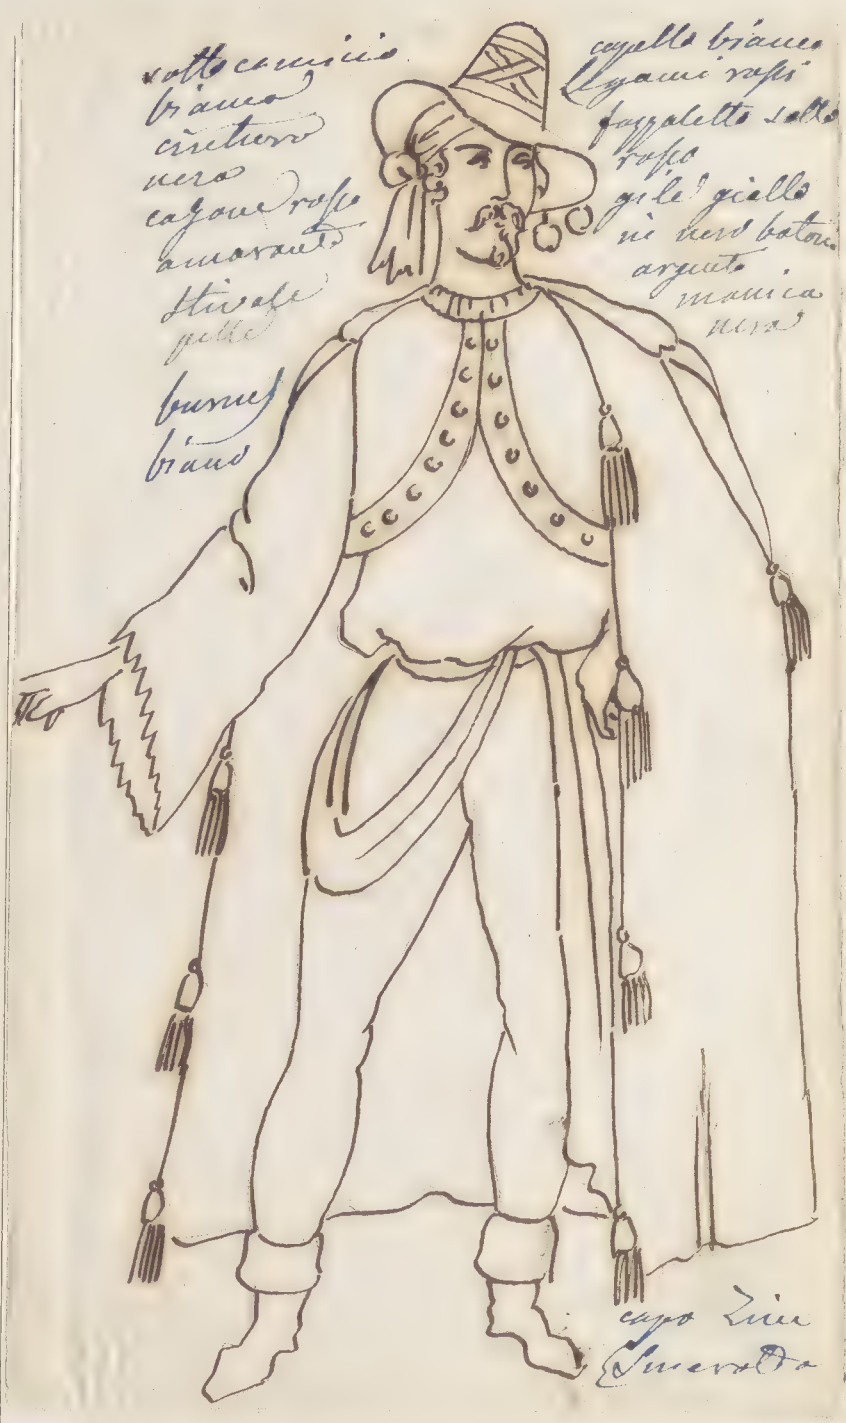 sotto camicia
bianca
cintura
nera
calzone rosso
amaranto
stivale
pelle
burnus
biano
capello bianco
legami rossi
fazzaletto sotto
rosso
gilé giallo
in nero botoni
argento
manica
nera
capo
Smeralda